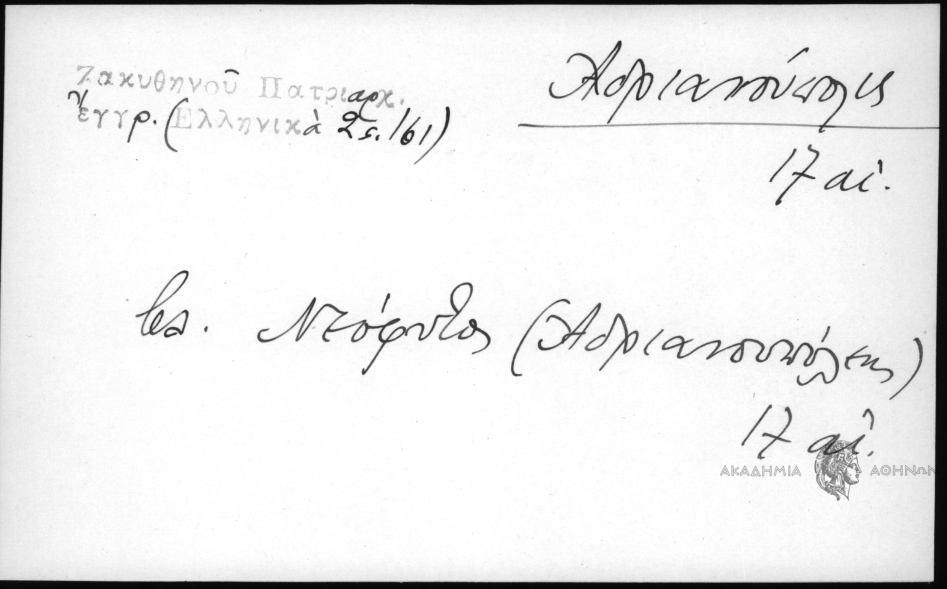 Ζακυθηνοῦ Πατριαρχ.
ἔγγρ. (Ἑλληνικὰ 2ς. 161)
Ἀδριανούπολις
17 αἰ.
βλ. Νεόφυτος (Ἀδριανουπόλεως)
17 αἰ.
ΑΚΑΔΗΜΙΑ ΑΘΗΝΩΝ